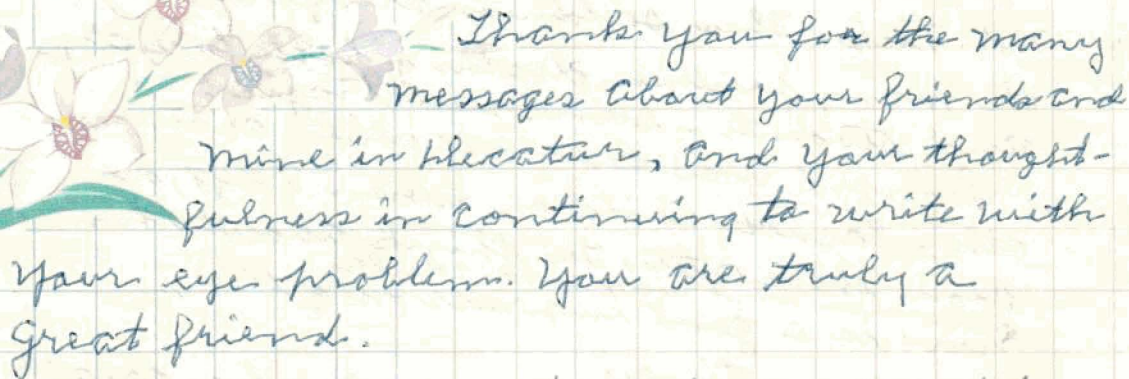 Thank you for the many
messages about your friends and
mine in Decatur, and your thought-
fulness in continuing to write with
your eye problem. You are truly a
great friend.